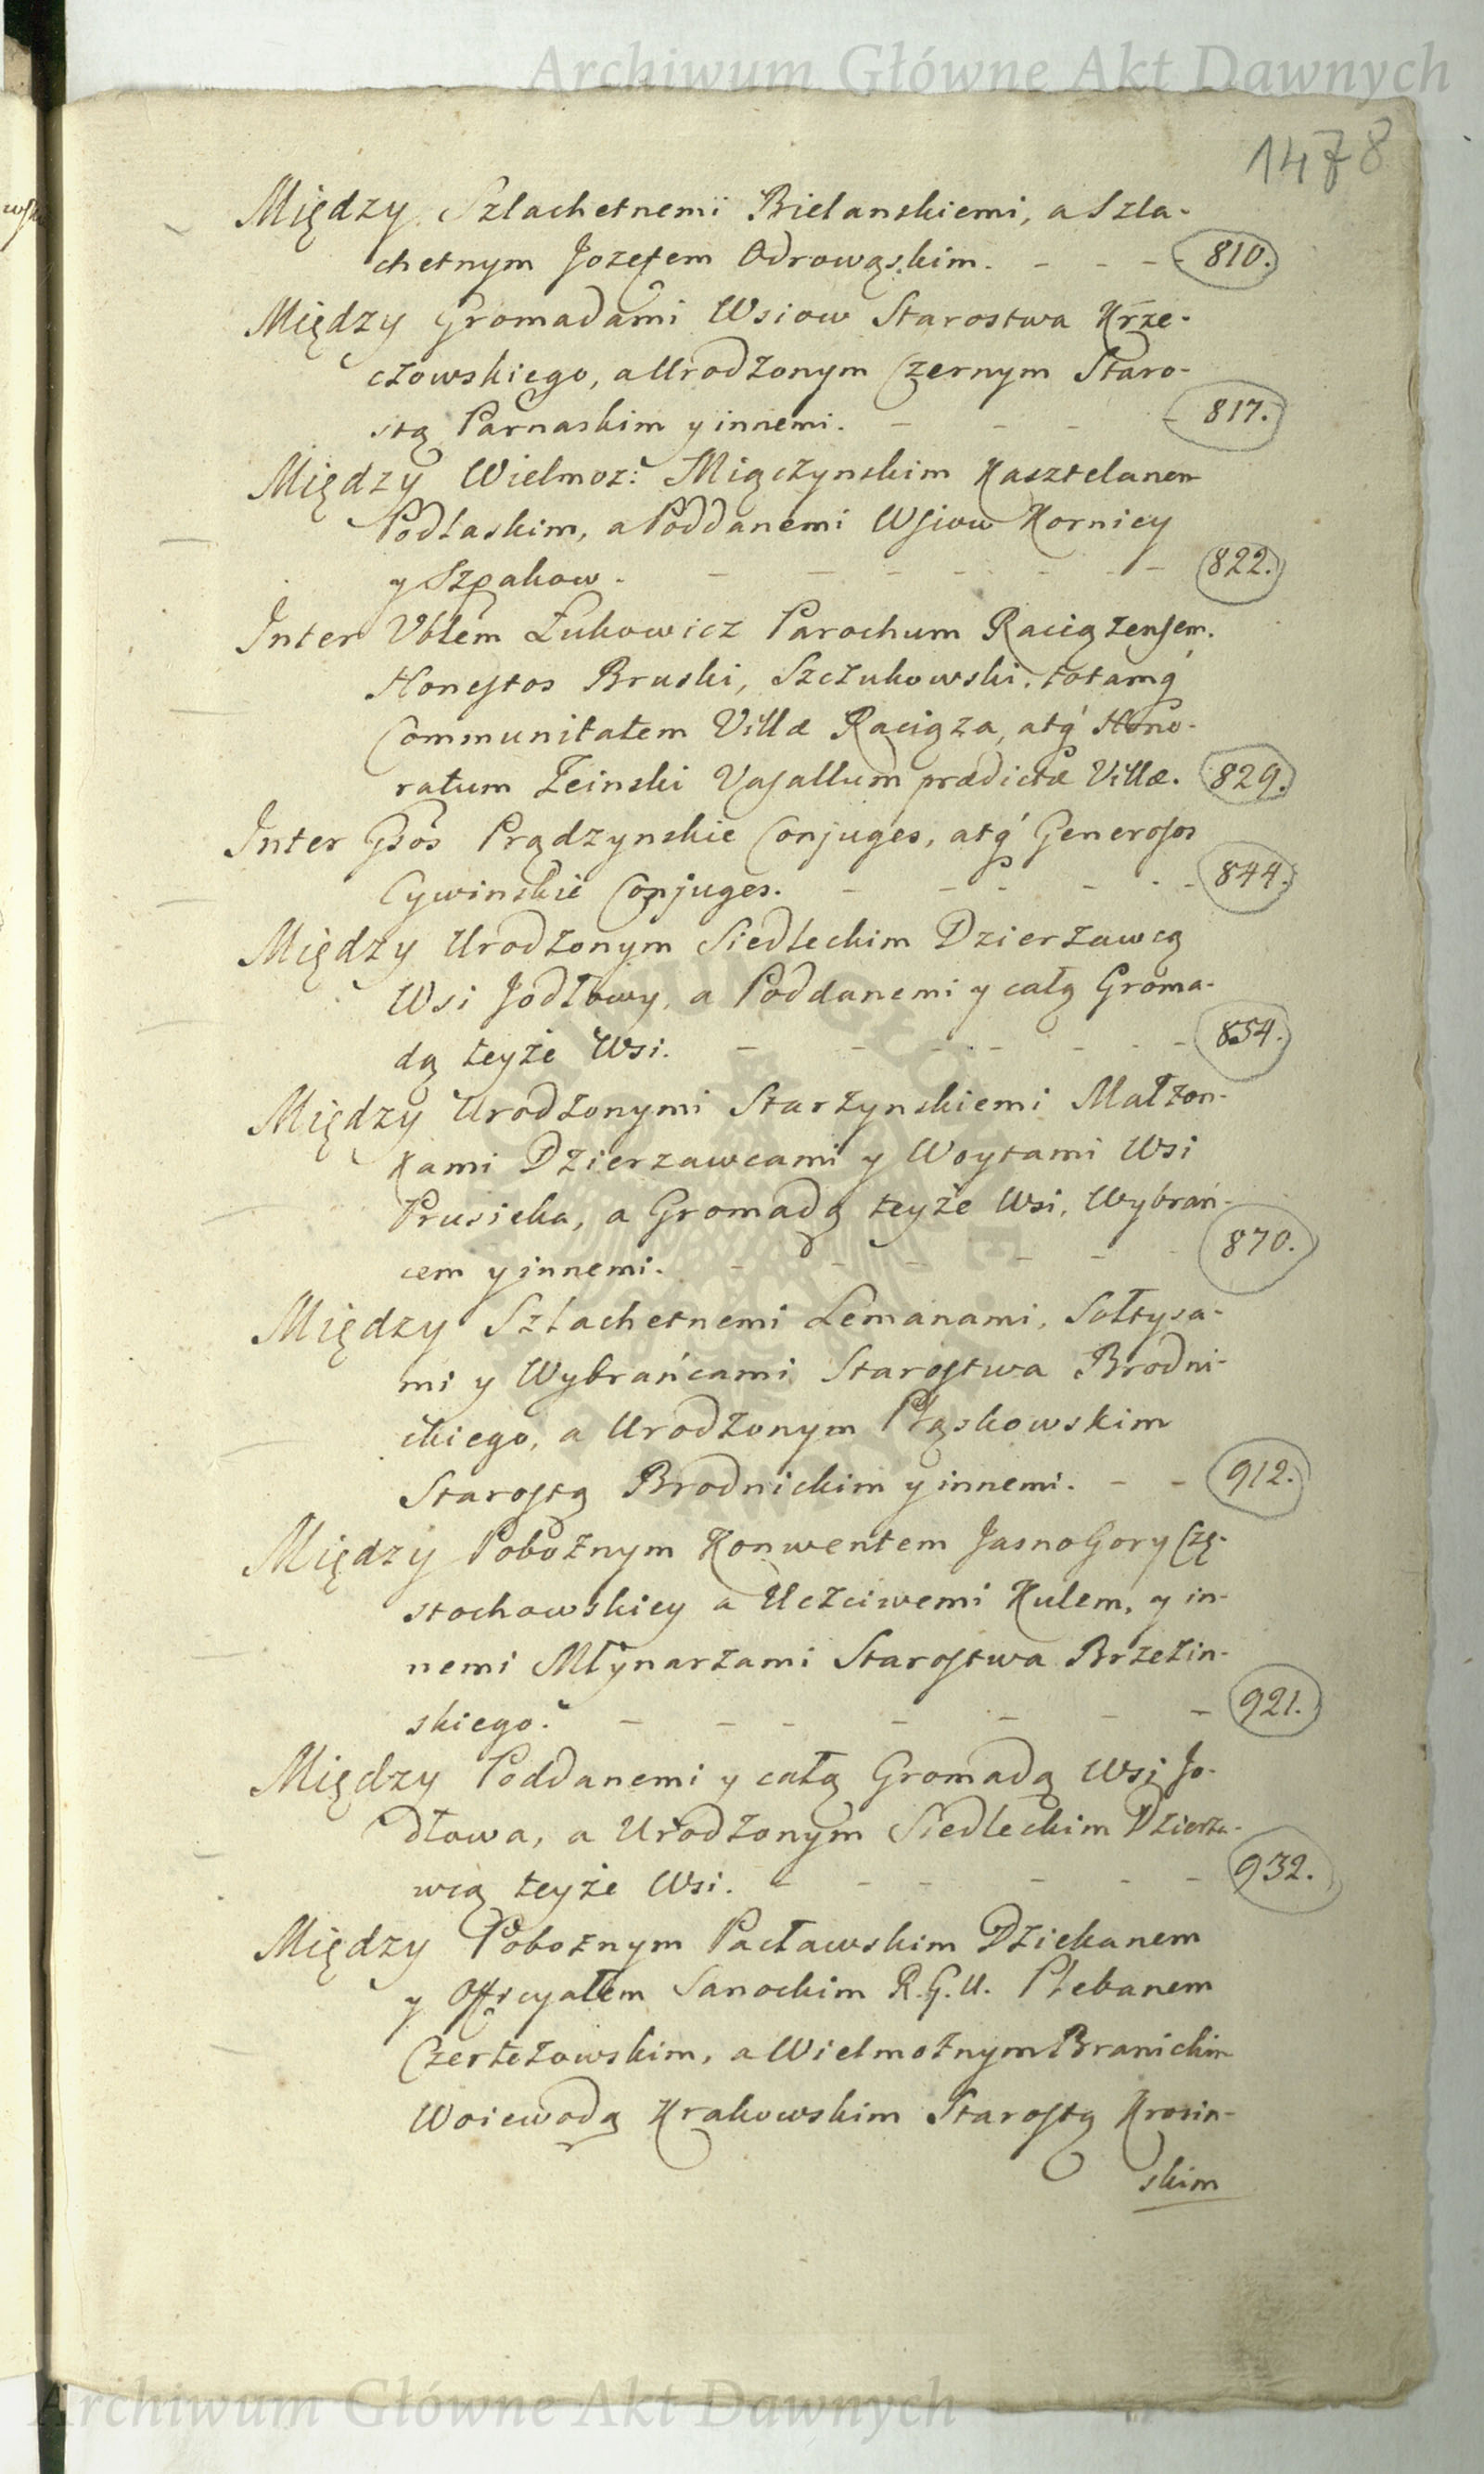 Archiwum Główne Akt Dawnych
1478
Między Szlachetnemi Bielanskiemi, a Szla-
chetnym Jozefem Odrowąskim. - - - 810.
Między Gromadami Wsiow Starostwa Krze-
czowskiego, a Urodzonym Czernym Staro-
stą Parnaskim y innemi. - - - - 817.
Między Wielmoż: Miączynskim Kasztelanem
Podlaskim, a Poddanemi Wsiow Kornicy
y Szpakow. - - - - - - - 822.
Inter Vblem Łukowicz Parochum Raciążensem,
Honestos Bruski, Szczukowski, totamq́
Communitatem Villæ Raciąza, atq́ Hono-
ratum Żeinski Vasallum prædictæ Villæ. 829.
Inter Gsos Prądzynskie Conjuges, atq́ Generosos
Cywinskie Conjuges. - - - - - - 844.
Między Urodzonym Siedleckim Dzierżawcą
Wsi Jodłowy, a Poddanemi y całą Groma-
dą teyże Wsi. - - - - - - - 854.
Między Urodzonymi Starzynskiemi Małżon-
kami Dzierzawcami y Woytami Wsi
Prusieka, a Gromadą teyże Wsi, Wybrań-
cem y innemi. - - - - - - 870.
Między Szlachetnemi Lemanami, Sołtysa-
mi y Wybrańcami Starostwa Brodni-
ckiego, a Urodzonym Pląskowskim
Starostą Brodnickim y innemi. - - 912.
Między Pobożnym Konwentem JasnoGory Czę-
stochowskiey a Uczciwemi Kulem, y in-
nemi Młynarzami Starostwa Brzezin-
skiego. - - - - - - - 921.
Między Poddanemi y całą Gromadą Wsi Jo-
dłowa, a Urodzonym Siedleckim Dzierża-
wcą teyże Wsi. - - - - - - 932.
Między Pobożnym Pacławskim Dziekanem
y Officyałem Sanockim R. G. U. Plebanem
Czerteżowskim, a Wielmożnym Branickim
Woiewodą Krakowskim Starostą Krosin-
skim
Archiwum Główne Akt Dawnych